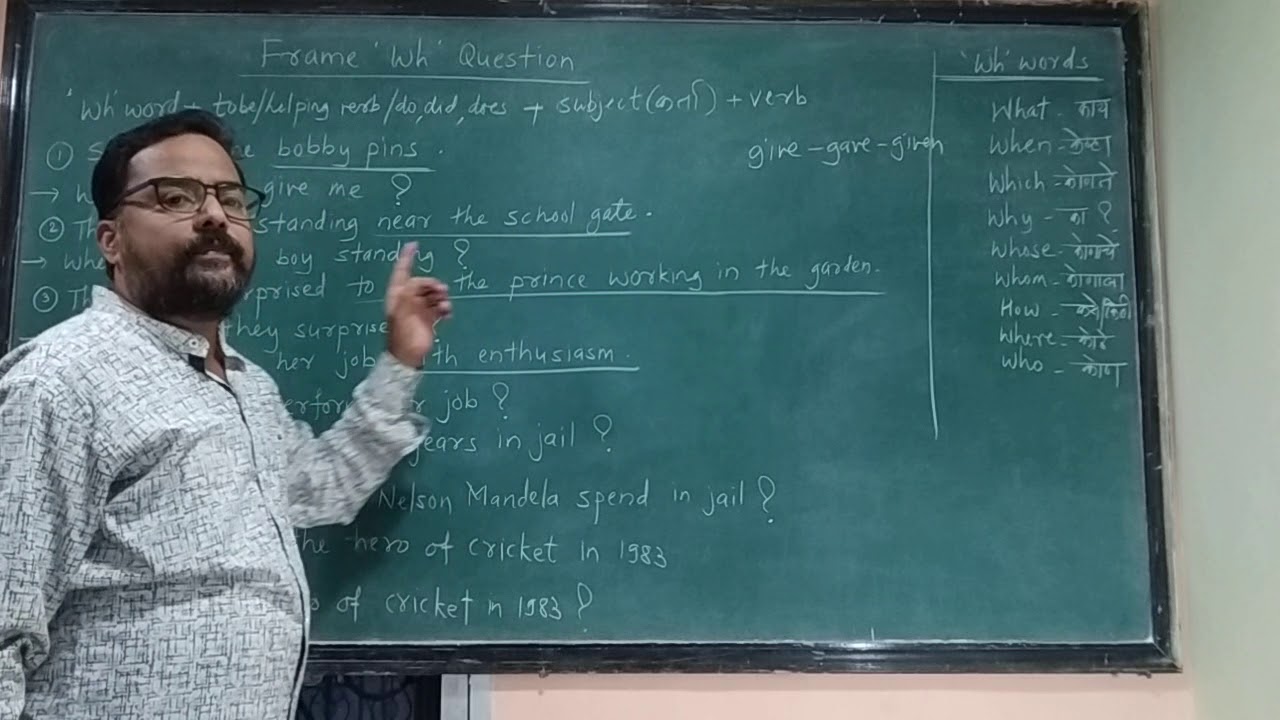 Frame 'Wh' Question
'Wh' word + tobe/helping verb/do, did, does + subject (कर्ता) + verb
① bobby pins.
→ give me ?
give - gave - given
② standing near the school gate.
→ boy standing ?
③ to the prince working in the garden.
they
her job with enthusiasm.
job ?
years in jail ?
Nelson Mandela spend in jail ?
the hero of cricket in 1983
of cricket in 1983 ?
'Wh' words
What - काय
When - केव्हा
Which - कोणते
Why - का ?
Whose - कोणाचे
Whom - कोणाला
How - कसे/किती
Where - कोठे
Who - कोण